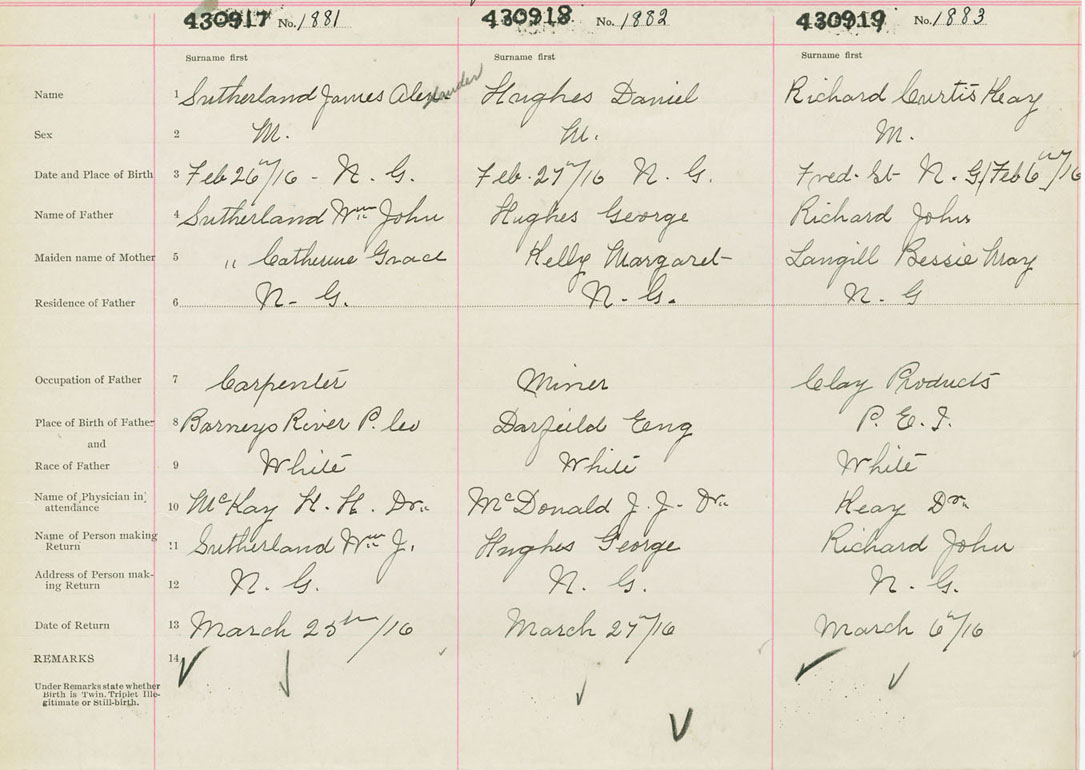 430917 No. 1881 430918 No. 1882 430919 No. 1883
Surname first Surname first Surname first
Name 1 Sutherland James Alexander Hughes Daniel Richard Curtis Keay
Sex 2 M. M. M.
Date and Place of Birth 3 Feb 26"/16 - N. G. Feb. 27"/16 N. G. Fred. St N. G. (Feb 6"/16
Name of Father 4 Sutherland Wm John Hughes George Richard John
Maiden name of Mother 5 " Catherine Grace Kelly Margaret Langill Bessie May
Residence of Father 6 N. G. N. G. N. G
Occupation of Father 7 Carpenter Miner Clay Products
Place of Birth of Father 8 Barneys River P. Co Darfield Eng P. E. I.
and
Race of Father 9 White White White
Name of Physician in attendance 10 McKay H. H. Dr. McDonald J. J. Dr. Keay Dr.
Name of Person making Return 11 Sutherland Wm J. Hughes George Richard John
Address of Person making Return 12 N. G. N. G. N. G.
Date of Return 13 March 25th/16 March 27"/16 March 6"/16
REMARKS 14
Under Remarks state whether
Birth is Twin. Triplet Ille-
gitimate or Still-birth.